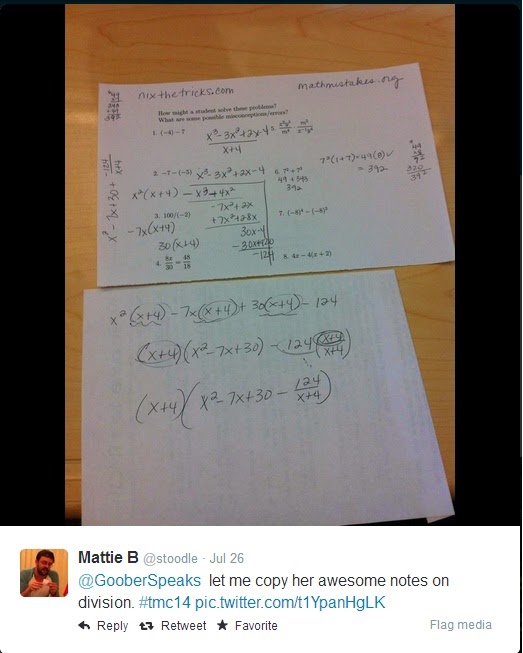 nixthetricks.com
mathmistakes.org
49
x2
How might a student solve these problems?
What are some possible misconceptions/errors?
1. (−4) − 7
x³-3x²+2x-4
x+4
2. −7 − (−5)
x³-3x²+2x-4
x²(x+4)
- x³+4x²
3. 100/(−2)
-7x²+2x
-7x(x+4)
+7x²+28x
30x-4
30(x+4)
-30x+120
-124
4. 8x/20 = 48/18
x²-7x+30+ -124/x+4
6. 7² + 7³
49 + 343
392
7²(1+7)=49(8)✓
= 392
49
x8
320
392
7. (−8)³ − (−8)²
8. 4x − 4(x + 2)
x²(x+4)-7x(x+4)+30(x+4)-124
(x+4)(x²-7x+30) - 124(x+4)/(x+4)
(x+4)(x²-7x+30 - 124/x+4)
Mattie B @stoodle · Jul 26
@GooberSpeaks let me copy her awesome notes on
division. #tmc14 pic.twitter.com/t1YpanHgLK
Reply Retweet Favorite
Flag media